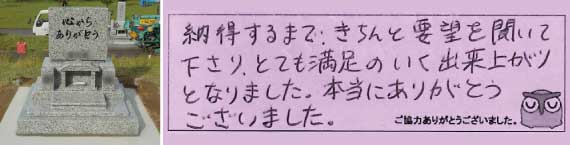 心から
ありがとう
納得するまで、きちんと要望を聞いて
下さり、とても満足のいく出来上がり
となりました。本当にありがとう
ございました。
ご協力ありがとうございました。